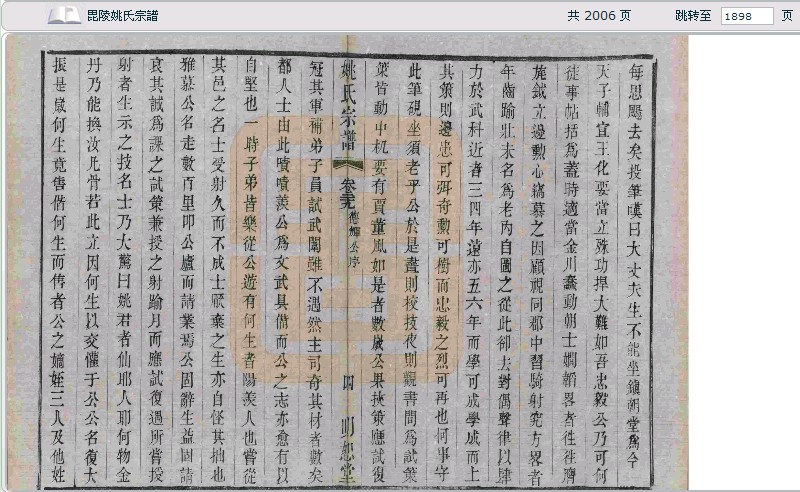 毘陵姚氏宗譜
共 2006 页
跳转至 1898 页
每思颺去矣投筆嘆曰大丈夫生不能坐鎮朝堂為今
天子輔宣王化要當立殊功捍大難如吾忠毅公乃可何
徒事帖括為蓋時適當金川蠢動朝士嫻韜畧者徃徃膺
旄鉞立邊勳心竊慕之因顧視同郡中習騎射究方畧者
年齒踰壯未名為老內自圖之從此卻去對偶聲律以肆
力於武科近者三四年遠亦五六年而學可成學成而上
其策則邊患可弭奇勳可衝而忠毅之烈可再也何事守
此筆硯坐須老乎公於是晝則校技夜則觀書間為試藁
策皆動中机要有賈董風如是者數歲公果挾策應試復
姚氏宗譜 卷 傳 公序 四 明恕堂
冠其軍補弟子員試武闈雖不遇然主司奇其材者數矣
都人士由此嘖嘖羨公為文武具備而公之志亦愈有以
自堅也一時子弟皆樂從公遊有何生者陽羨人也嘗從
其邑之名士受射久而不成士厭棄之生亦自怪其拙也
雅慕公名走數百里叩公廬而請業焉公固辭生益固請
哀其誠為課之試策兼授之射踰月而應試復遇所嘗授
射者生示之技名士乃大驚曰姚君者仙耶人耶何物金
丹乃能換汝凡骨若此立因何生以交懽于公公名復大
振是歲何生竟售偕何生而傳者公之嫡姪三人及他姓